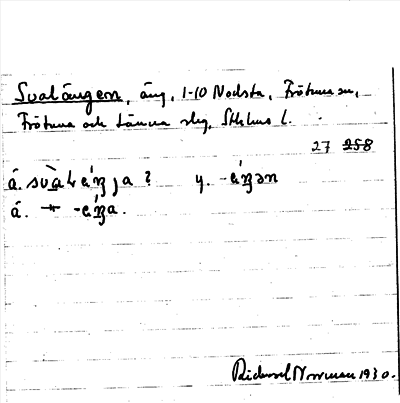 Svalängen, äng, 1-10 Nodsta, Frötuna sn,
Frötuna och Länna slg, Sthlms l.
27 258
á. svàlʹéŋja? y. -éŋən
á. + -éŋa.
Rickard Norrman 1930.